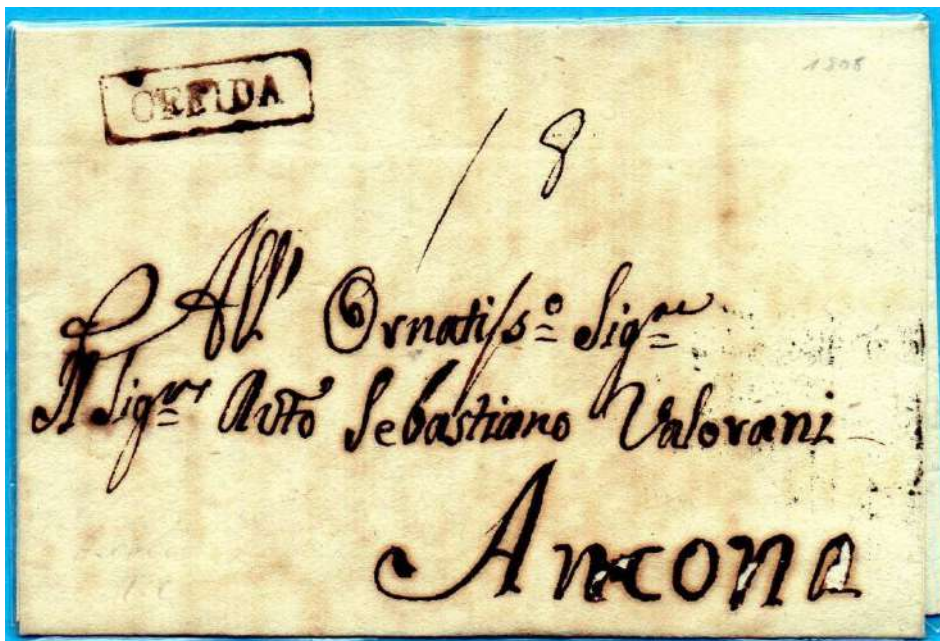 OFFIDA
1808
18
All' Ornatiſsº Sigʳᵉ
Il Sigʳᵉ Sebastiano Valorani
Ancona